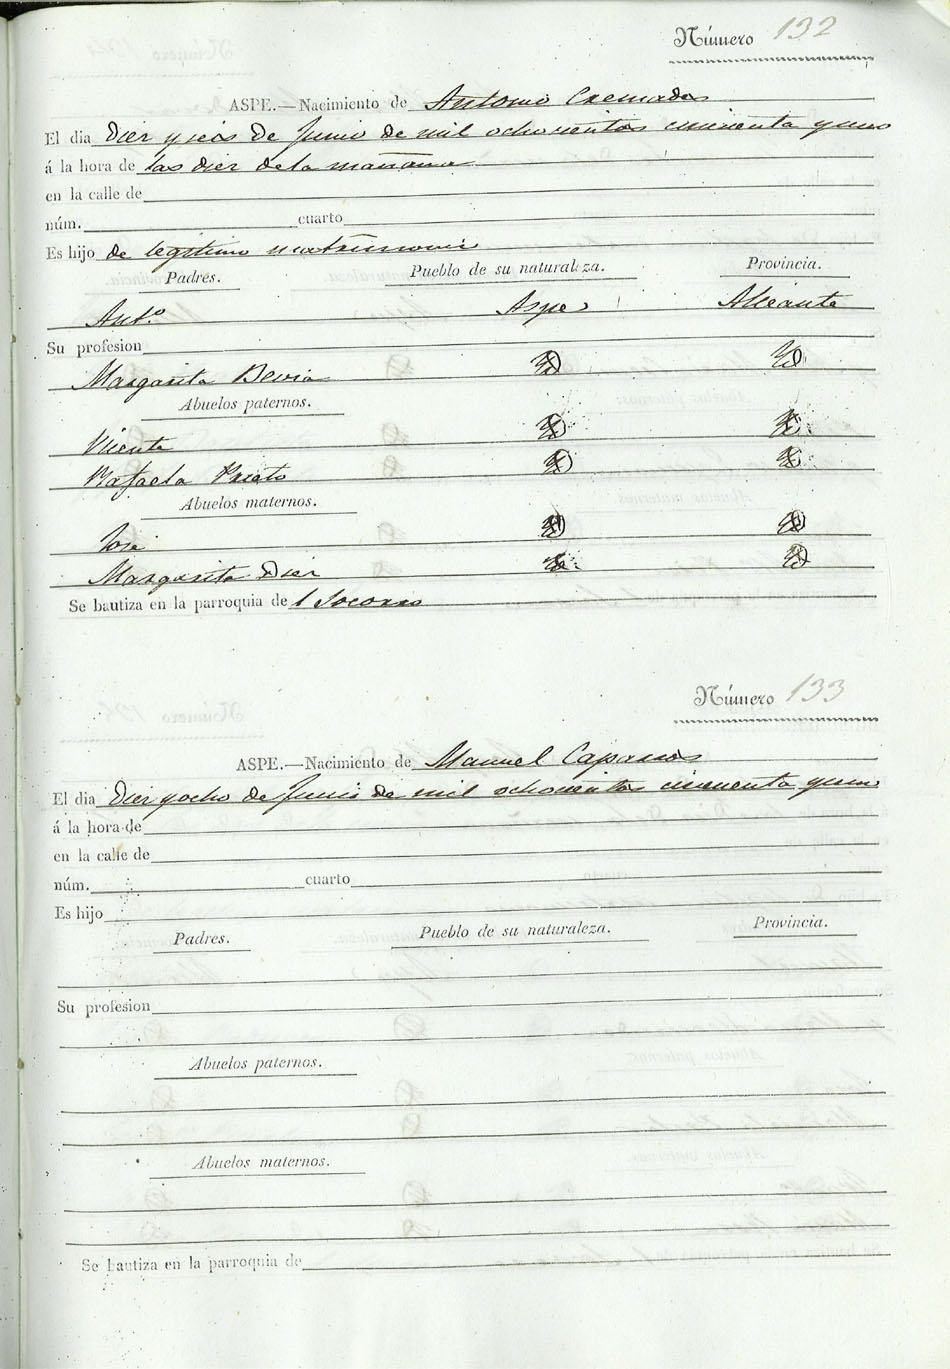 Número 132
ASPE.—Nacimiento de Antonio Cremades
El dia Diez y seis de Junio de mil ochocientos cincuenta y uno
á la hora de las diez de la mañana
en la calle de
núm. cuarto
Es hijo de legitimo matrimonio
Padres. Pueblo de su naturaleza. Provincia.
Ant.º Aspe Alicante
Su profesion
Margarita Bevia
Abuelos paternos.
Vicente
Rafaela Prieto
Abuelos maternos.
Jose
Margarita Diez
Se bautiza en la parroquia de l Socorro
Número 133
ASPE.—Nacimiento de Manuel Caparros
El dia Diez y ocho de Junio de mil ochocientos cincuenta y uno
á la hora de
en la calle de
núm. cuarto
Es hijo
Padres. Pueblo de su naturaleza. Provincia.
Su profesion
Abuelos paternos.
Abuelos maternos.
Se bautiza en la parroquia de